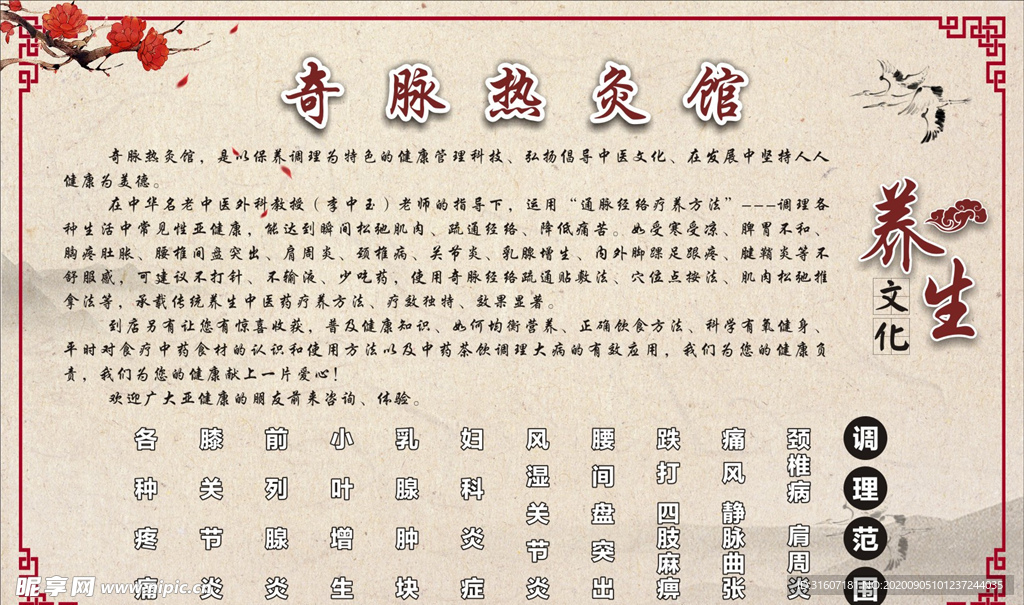 奇脉热灸馆
奇脉热灸馆，是以保养调理为特色的健康管理科技、弘扬倡导中医文化、在发展中坚持人人
健康为美德。
在中华名老中医外科教授（李中玉）老师的指导下，运用“通脉经络疗养方法”---调理各
种生活中常见性亚健康，能达到瞬间松驰肌肉、疏通经络、降低痛苦。如受寒受凉、脾胃不和、
胸疼肚胀、腰椎间盘突出、肩周炎、颈椎病、关节炎、乳腺增生、内外脚踝足跟疼、腱鞘炎等不
舒服感，可建议不打针、不输液、少吃药，使用奇脉经络疏通贴敷法、穴位点按法、肌肉松驰推
拿法等，承载传统养生中医药疗养方法、疗效独特、效果显著。
到店另有让您有惊喜收获，普及健康知识、如何均衡营养、正确饮食方法、科学有氧健身、
平时对食疗中药食材的认识和使用方法以及中药茶饮调理大病的有效应用，我们为您的健康负
责，我们为您的健康献上一片爱心！
欢迎广大亚健康的朋友前来咨询、体验。
养生
文化
调理范围
颈椎病 肩周炎
痛风 静脉曲张
跌打 四肢麻痹
腰间盘突出
风湿关节炎
妇科炎症
乳腺肿块
小叶增生
前列腺炎
膝关节炎
各种疼痛
昵享网 www.nipic.cn
NO:20200905101237244035